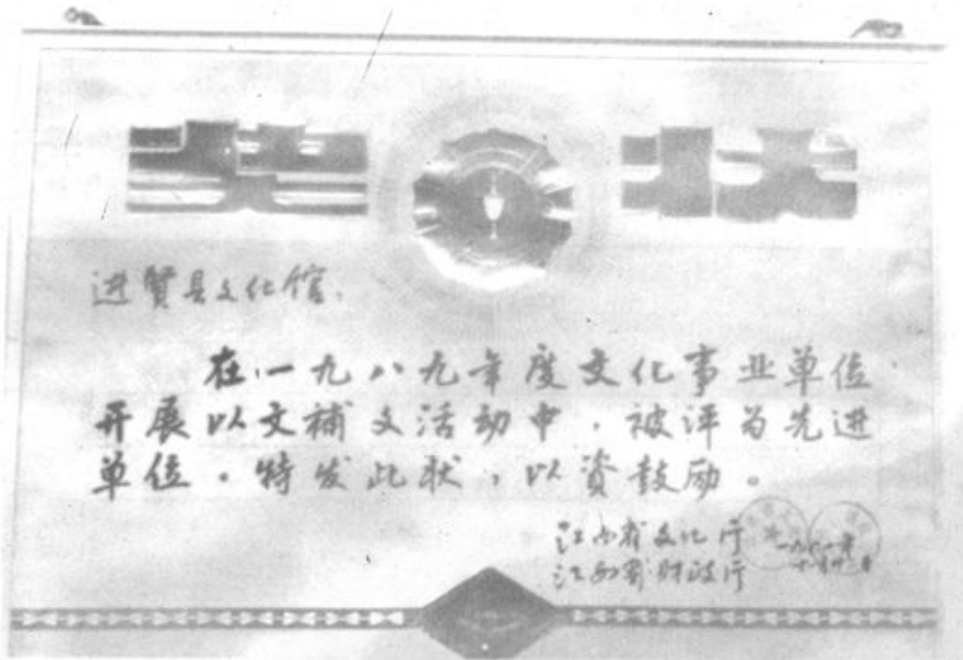 进贤县文化馆：
在一九八九年度文化事业单位
开展以文補文活动中，被评为先进
单位。特发此状，以资鼓励。
江西省文化厅
江西省财政厅